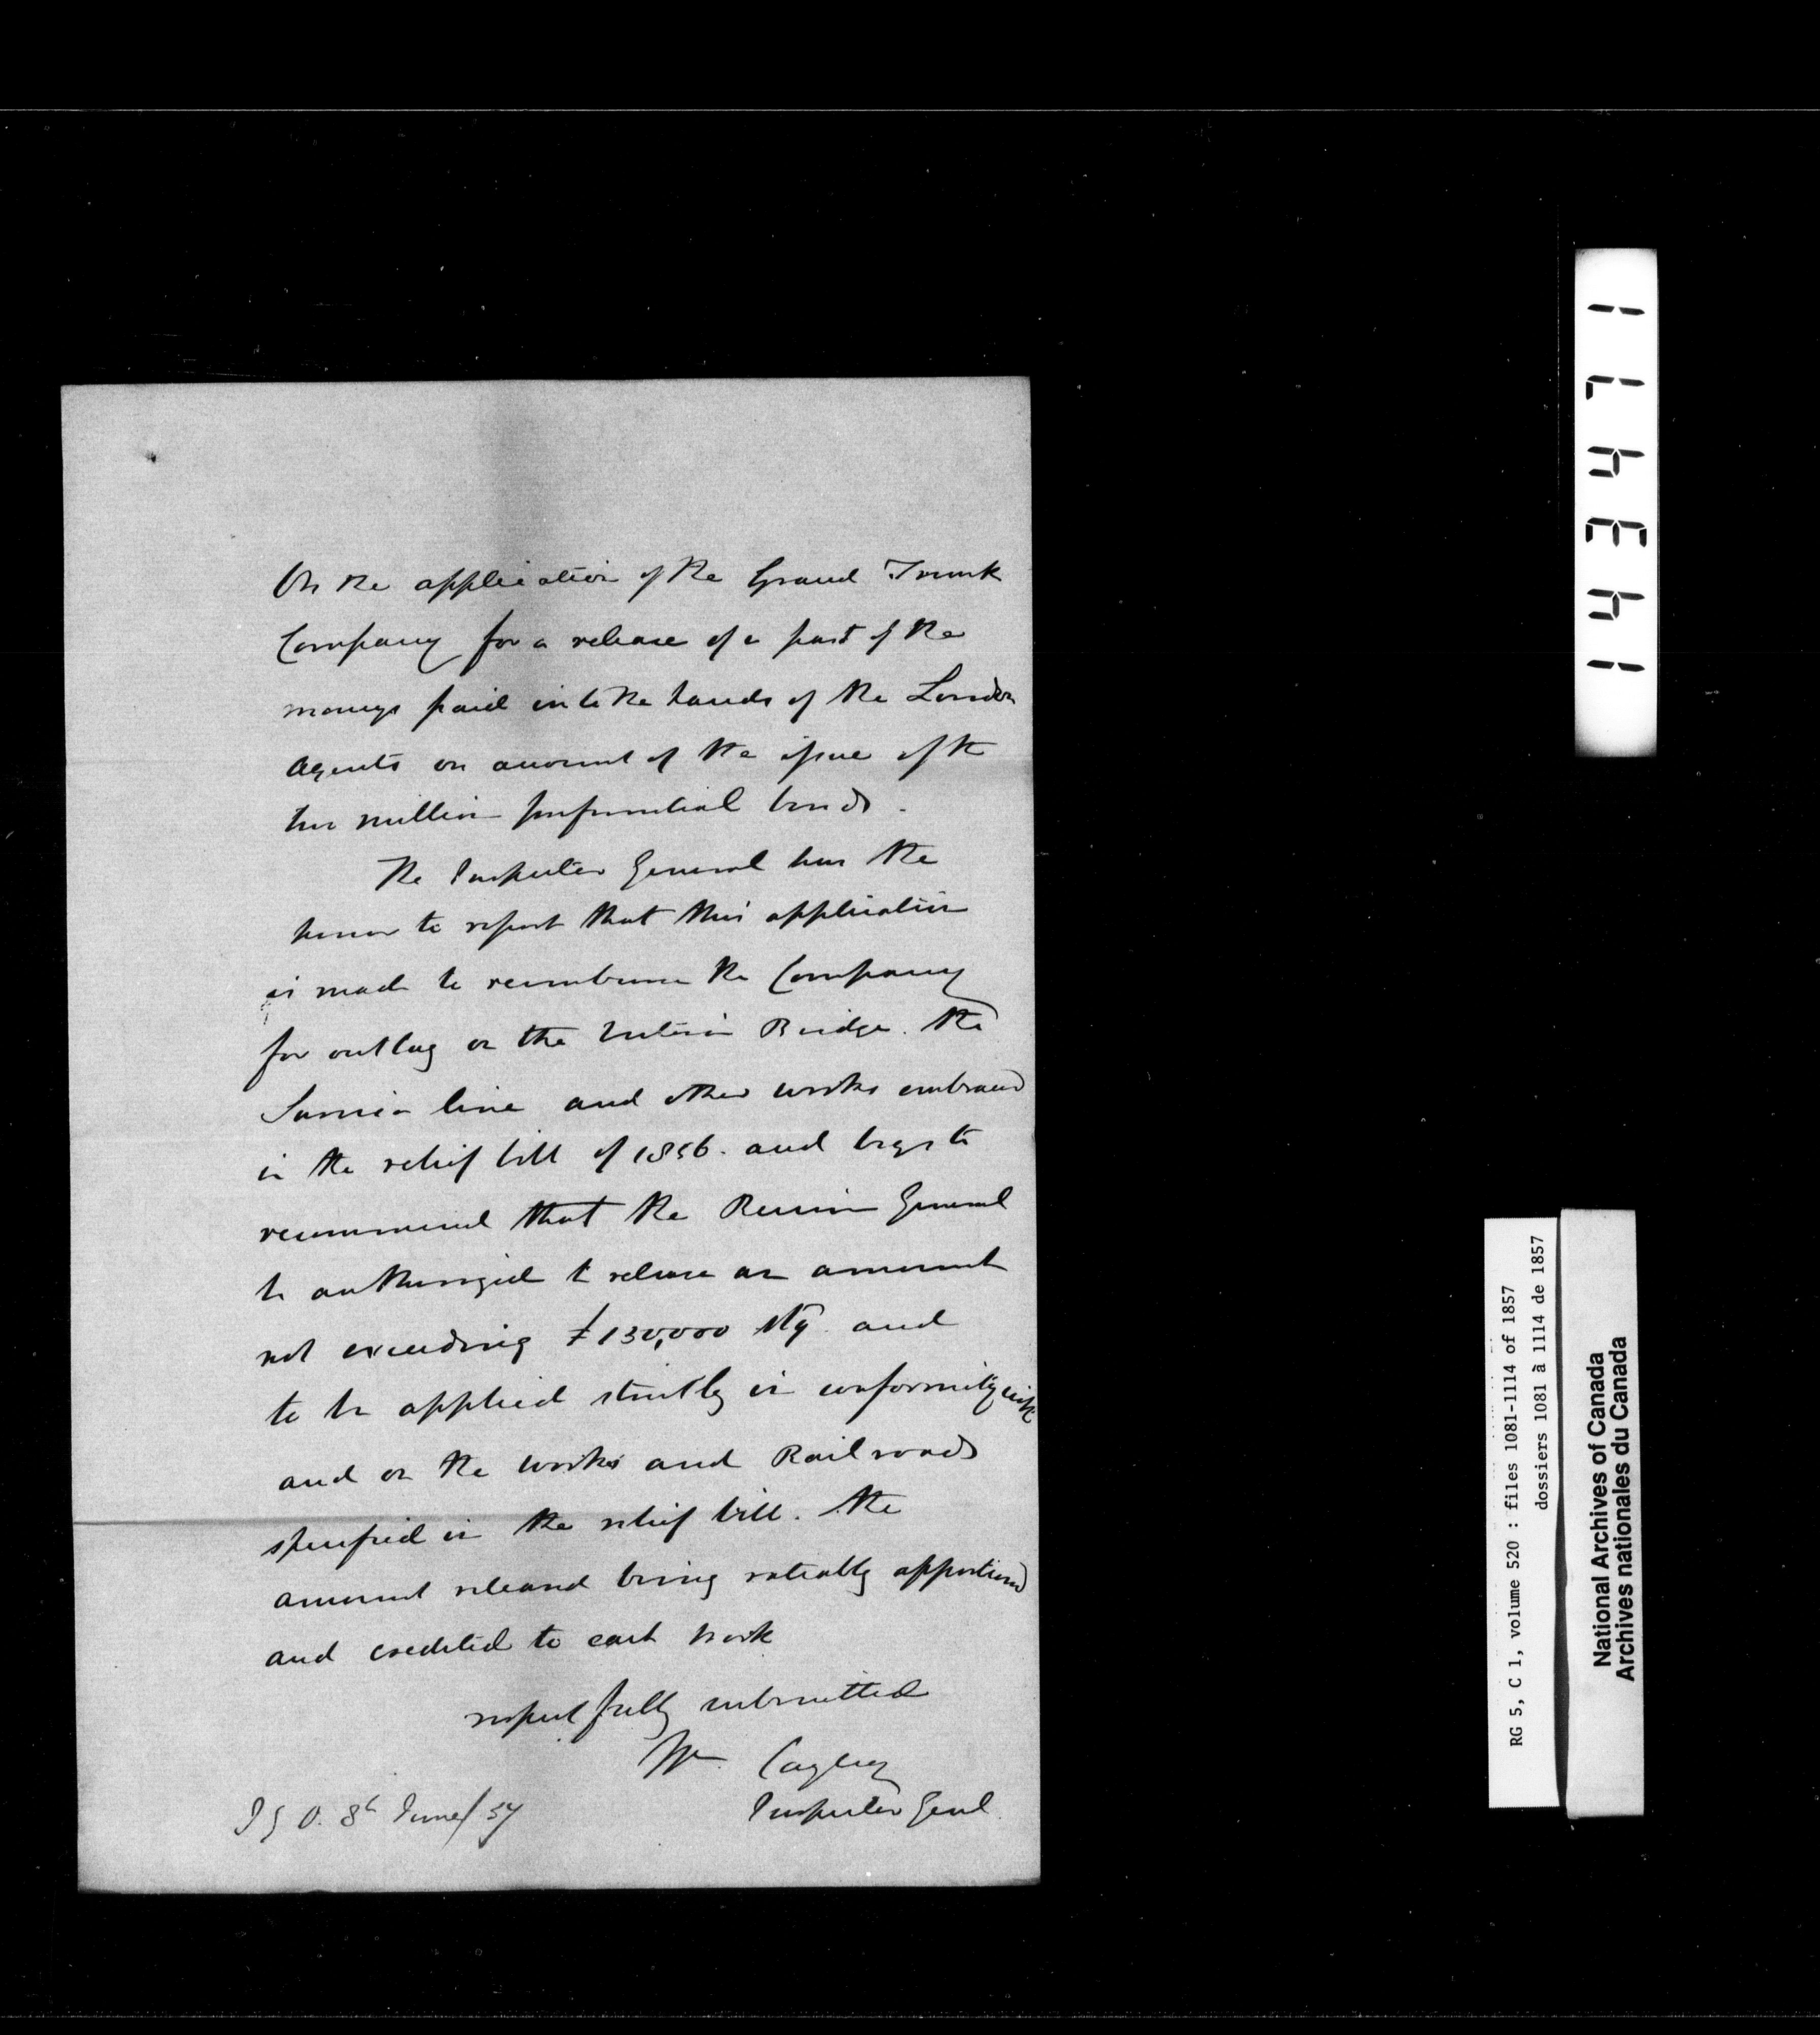 On the application of the Grand Trunk
Company for a release of a part of the
moneys paid into the hands of the London
Agents on account of the issue of the
two million preferential bonds.
The Inspector General has the
honor to report that this application
is made to reimburse the Company
for outlay on the Victoria Bridge. the
Sarnia line and other works embraced
in the relief bill of 1856. and begs to
recommend that the Receiver General
be authorized to release an amount
not exceeding £130,000 Stg. and
to be applied strictly in conformity with
and on the works and Railroads
specified in the relief bill. the
amount released being rateably apportioned
and credited to each work
respectfully submitted
Wm. Cayley
Inspector Genl.
I G O. 8th June/57
143471
RG 5, C 1, volume 520 : files 1081-1114 of 1857
dossiers 1081 à 1114 de 1857
National Archives of Canada
Archives nationales du Canada